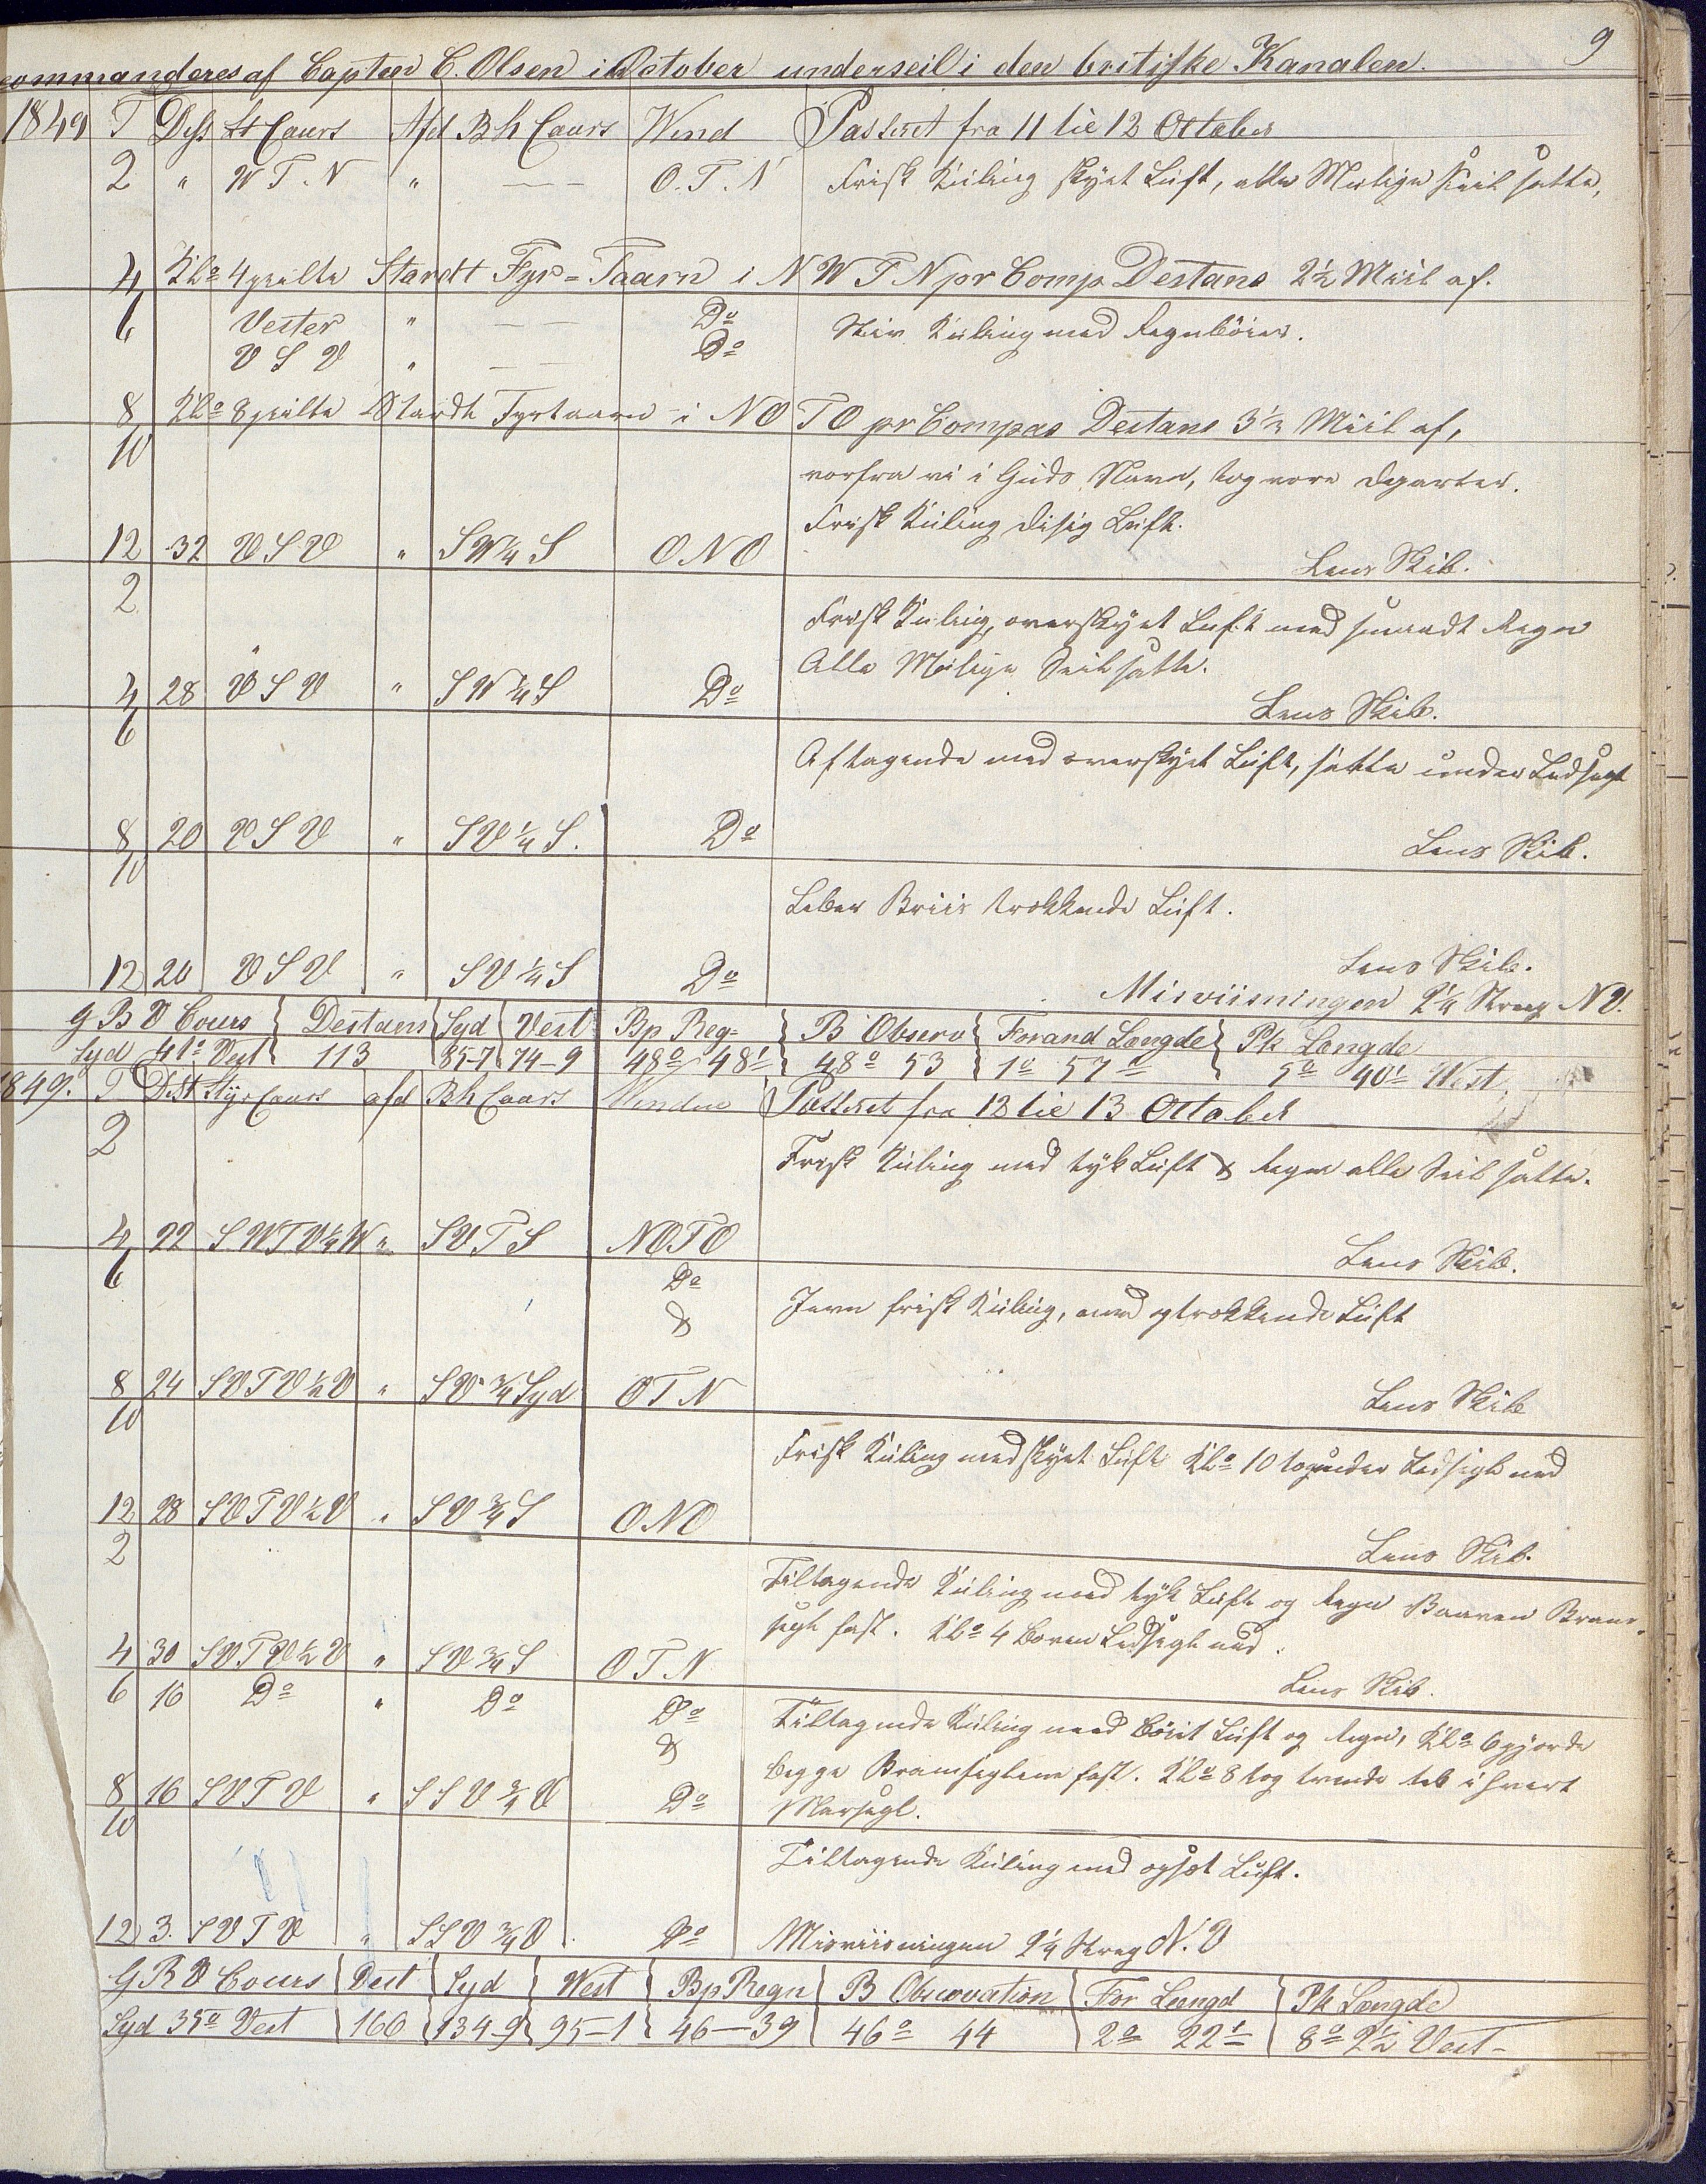 9
commanderes af Capten C. Olsen i October underseil i den britiske Kanalen.
1849 T Dss St Cours Afd Bh Cours Wind Passeret fra 11 til 12 Octtober
2 " W T. N " — — O. T. N Frisk Kuling skyet Luft, alle Mulige Seil satte,
4 Klo 4 peilte Stardt Fyr=Taarn i N W T N pr Comp Destans 2½ Miil af.
6 Vester " — — Do Stiv Kuling med Regnböier.
V S V " — — Do
8 Klo 8 peilte Stardt Fyrtaarn i NO T O pr Compas Destans 3½ Miil af,
10 vorfra vi i Guds Navn, tog vore Departer.
Frisk Kuling disig Luft.
12 32 V S V " S W ¼ S O N O
Lens Skib.
2 Frisk Kuling, overskyet Luft med smaadt Regn
Alle Mulige Seil satte.
4 28 V S V " S W ¼ S Do
Lens Skib.
6 Aftagende med overskyet Luft, satte under Ledsegl
8 20 V S V " S V ¼ S. Do
Lens Skib.
10 Laber Briis trækkende Luft.
12 20 V S V " S V ¼ S Do
Lens Skib.
Misviisningen 2¼ Streg N V.
G B V Cours Destans Syd Vest Bp Reg= B Observ Forand Længde Pk Længde
Syd 41o Vest 113 85-7 74-9 48o 48' 48o 53 1o 57' 5o 40' West
1849. T Dist Styr Cours afd Bh Cours Winden Passeret fra 12 til 13 Octtober
2 Frisk Kuling med tyk Luft & Regn alle Seil satte.
4 22 S W T V ¼ W " S V T S N O T O
Lens Skib.
6 Do Jevn frisk Kuling, med optrækkende Luft
&
8 24 S V T V ½ V " S V ¾ Syd O T N
Lens Skib
10 Frisk Kuling med skyet Luft Klo 10 tog under Ledseigl ned
12 28 S V T V ½ V " S V ¾ S O N O
Lens Skib.
2 Tiltagende Kuling med tyk Luft og Regn Baaven Bram-
segl fast. Klo 4 Boven Ledsegl ned.
4 30 S V T V ½ V " S V ¾ S O T N
Lens Skib.
6 16 Do " Do Do Tiltagende Kuling med Böiet Luft og Regn, Klo 6 gjorde
& begge Bramseglene fast. Klo 8 tog tvende Reb i hvert
8 16 S V T V " S S V ¾ V Do Marsegl.
10 Tiltagende Kuling med opsöt Luft.
12 3. S V T V " S S V ¾ V Do Misviisningen 2¼ Streg N. V
G R V Cours Dest Syd West Bp Regn B Observation For Længd Pk Længde
Syd 35o Vest 166 134-9 95-1 46-39 46o 44 2o 22' 8o 2½ Vest-